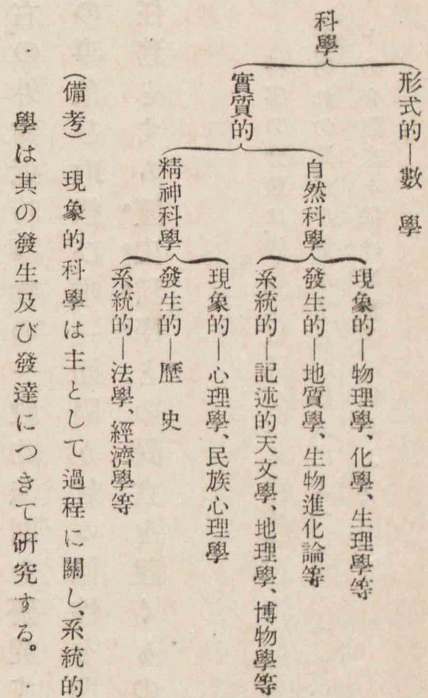 科學
形式的―數 學
實質的
自然科學
現象的―物理學、化學、生理學等
發生的―地質學、生物進化論等
系統的―記述的天文學、地理學、博物學等
精神科學
現象的―心理學、民族心理學
發生的―歷 史
系統的―法學、經濟學等
(備考) 現象的科學は主として過程に關し、系統的
學は其の發生及び發達につきて研究する。